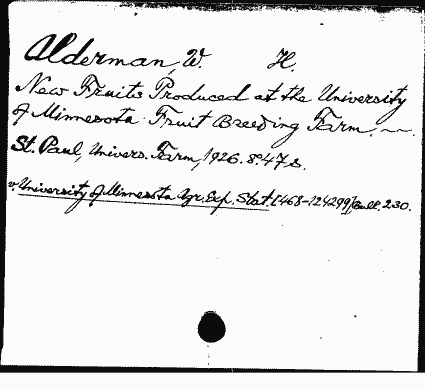 Alderman, W. H.
New Fruits Produced at the University
of Minnesota Fruit Breeding Farm. ~~
St. Paul, Univers. Farm, 1926. 8° 47 s.
v. University of Minnesota Agr. Exp. Stat. [468-124299] Bull. 230.